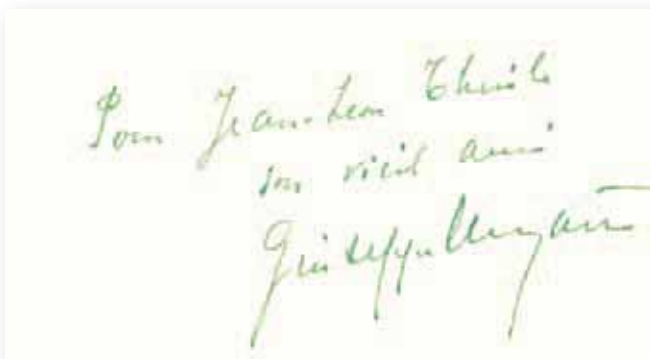 Pour Jean-Léon Thuile
son vieil ami
Giuseppe Ungaretti